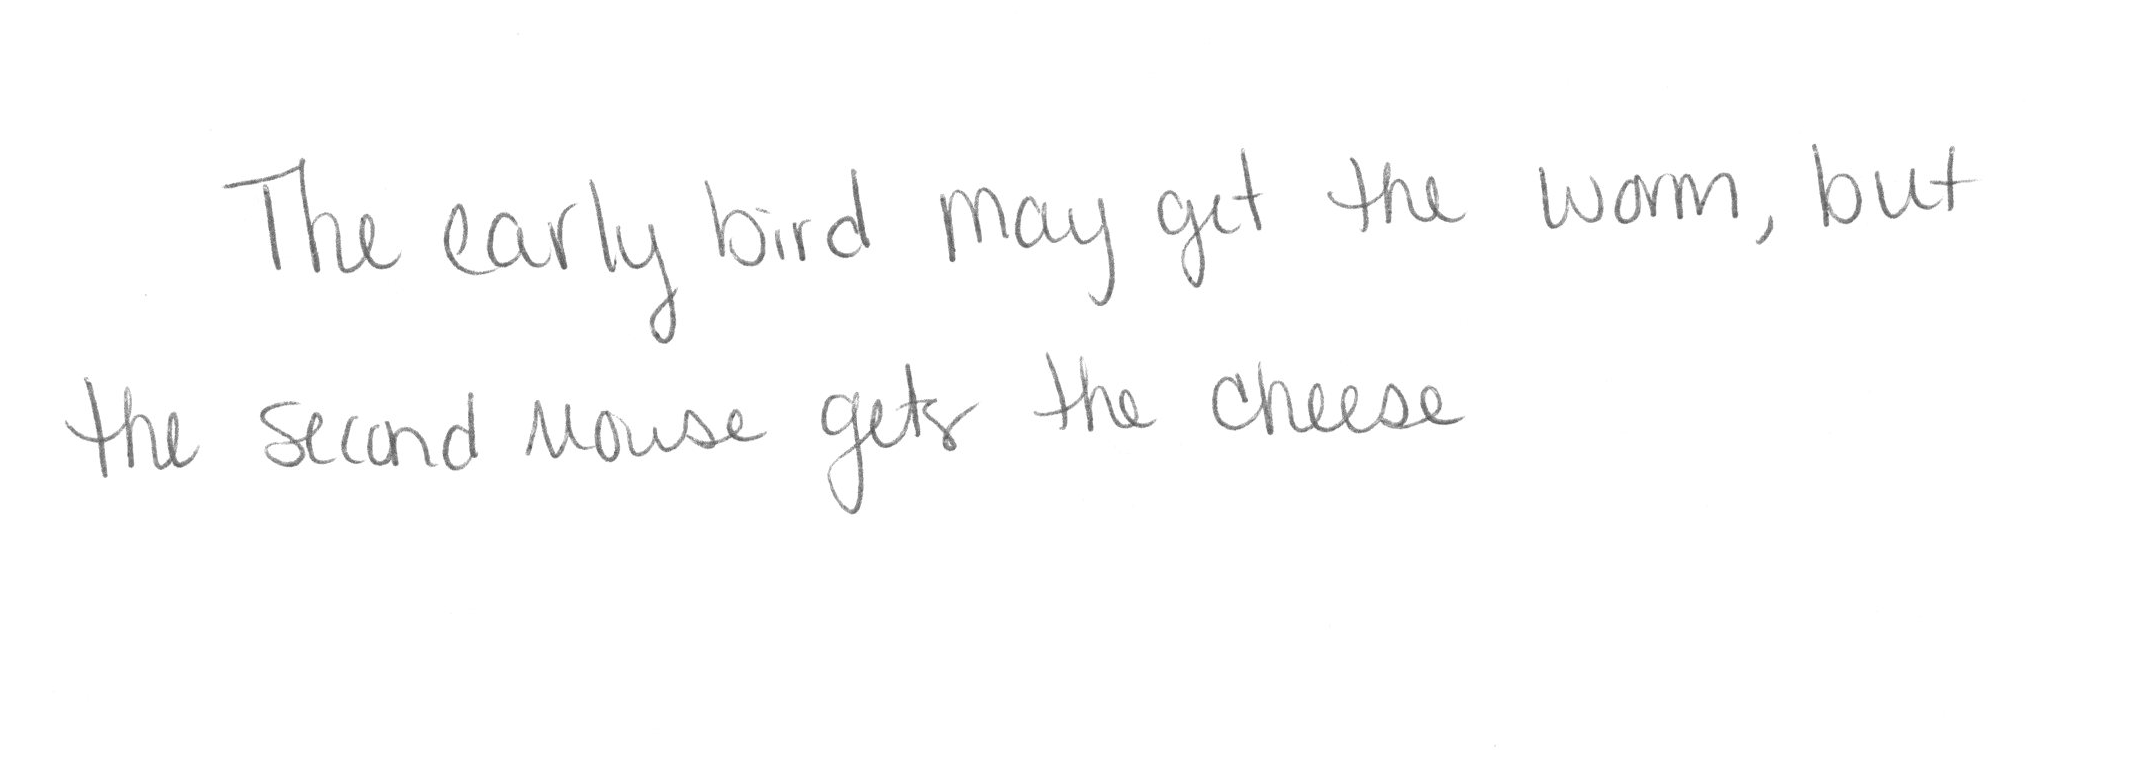 The early bird may get the worm, but
the second mouse gets the cheese